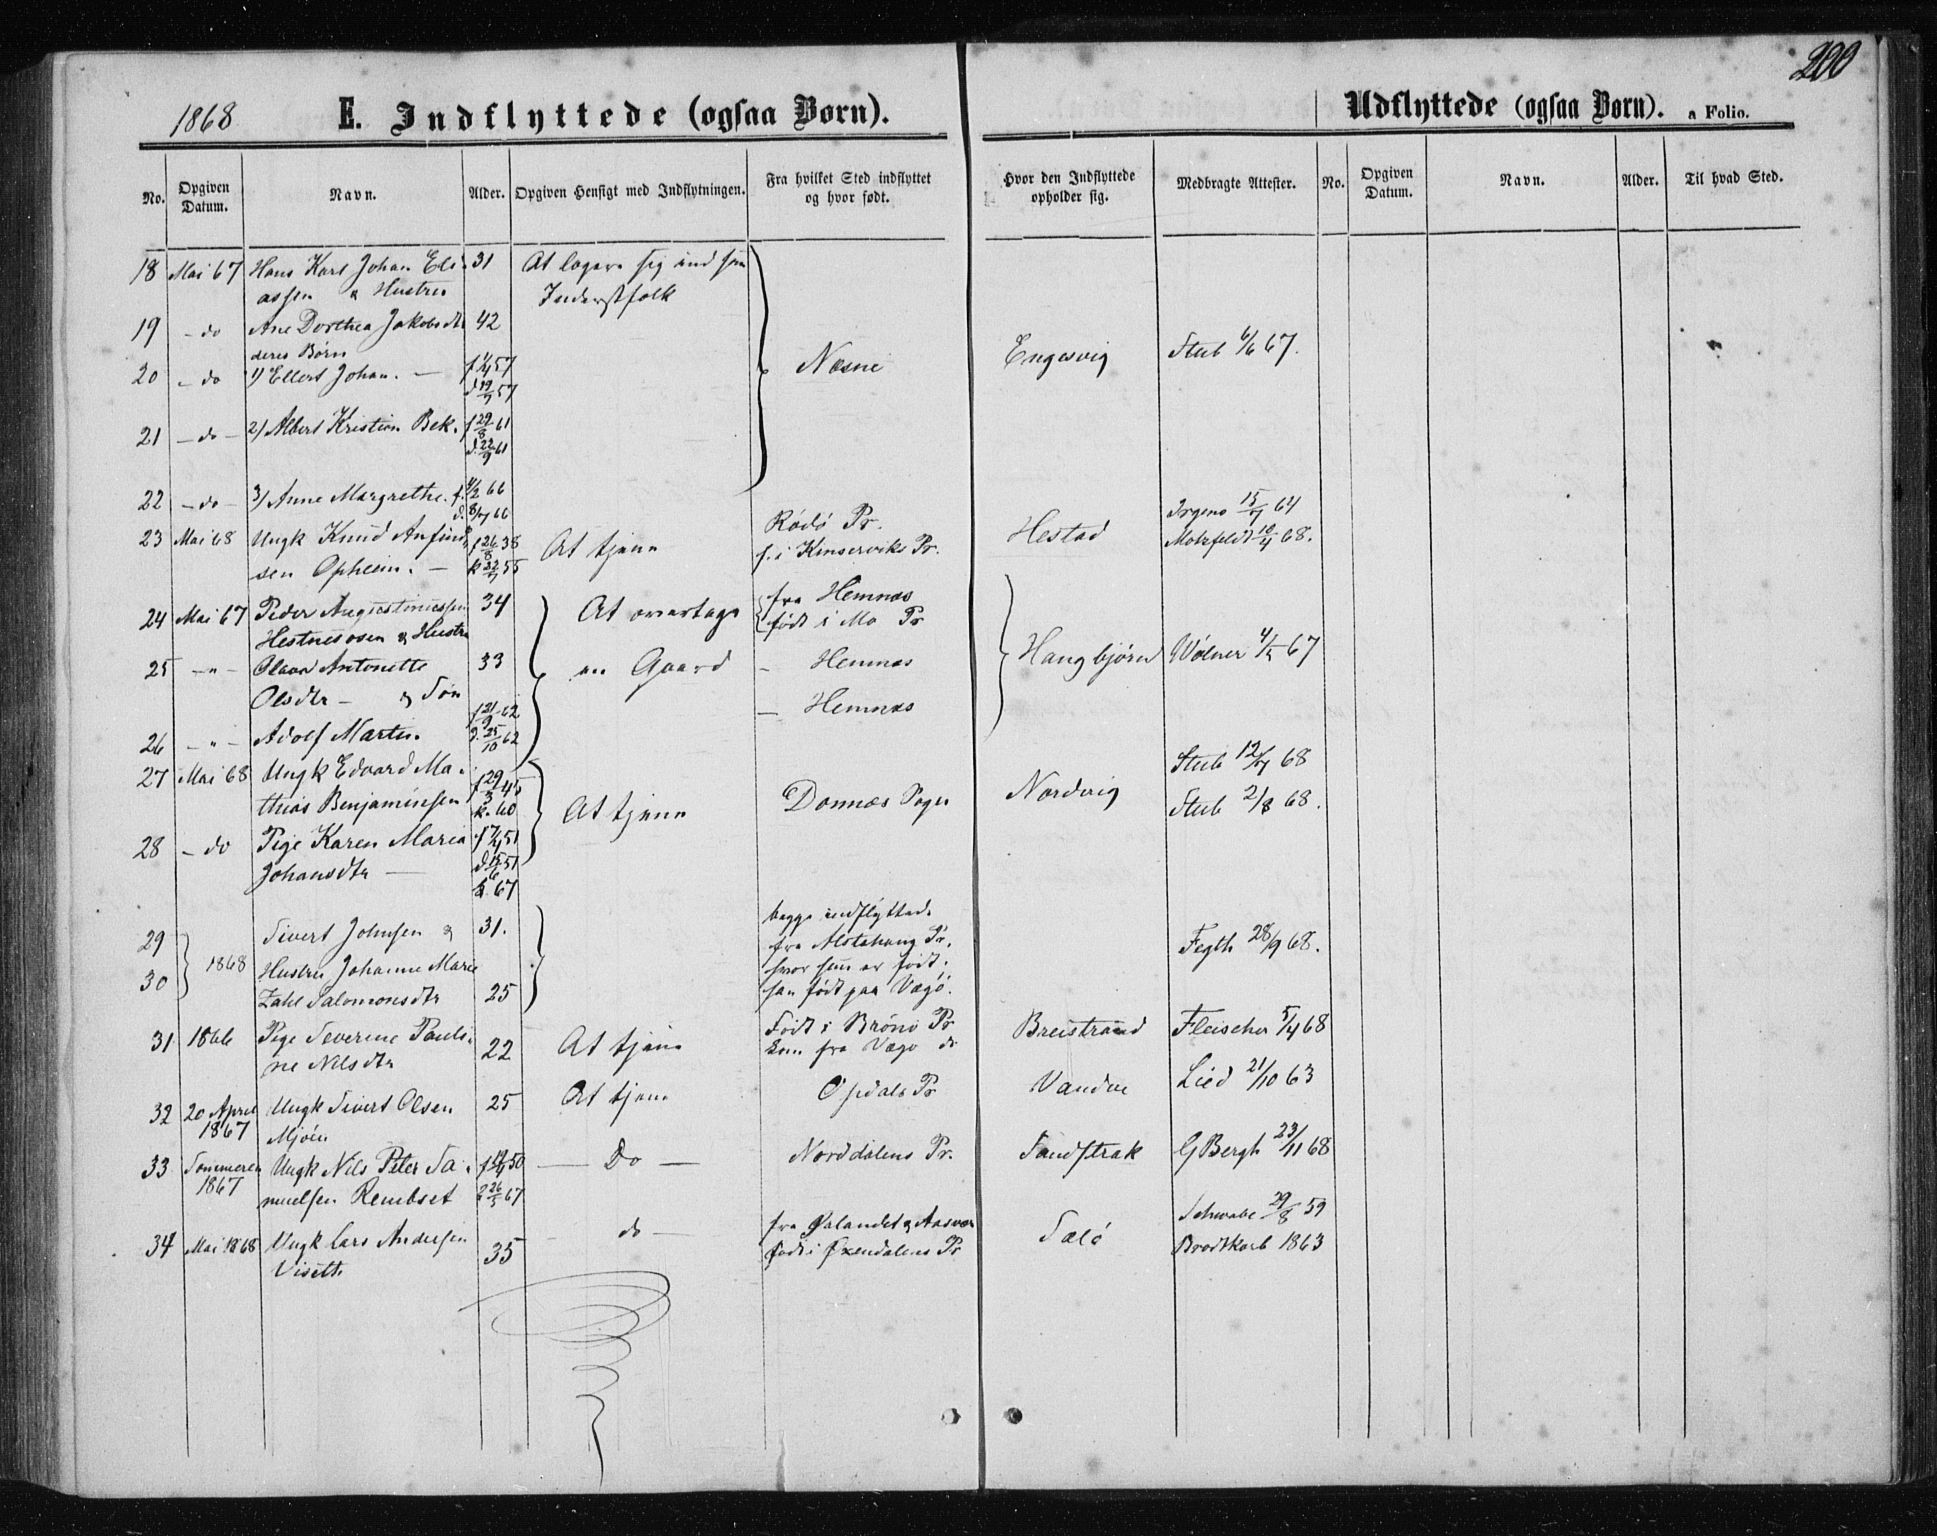 200
1868
E. Indflyttede (ogsaa Børn).
Udflyttede (ogsaa Børn). a Folio.
No. Opgiven Datum. Navn. Alder. Opgiven Hensigt med Indflytningen. Fra hvilket Sted indflyttet og hvor født. Hvor den Indflyttede opholder sig. Medbragte Attester. No. Opgiven Datum. Navn. Alder. Til hvad Sted.
18 Mai 67 Hans Karl Johan Eli- 31 At logere sig ind som
assen & Hustru Inderstfolk
19 - do Ane Dorthea Jakobsdtr 42
deres Børn Næsne Engesvig Stub 6/6 67.
20 - do 1) Ellert Johan. - f 1/4 57
d 19/7 57
21 - do - 2) Albert Kristian Bek. f 29/8 61
d. 22/9 61
22 - do - 3) Anne Margrethe. f. 4/2 66
d. 8/4 66
23 Mai 68 Ungk Knud Anfind- f 26/8 38 At tjene Rødø Pr. Hestad Irgens 15/7 64
sen Opheim. - k 22/7 55 f. i Kinserviks Pr. Motzfeldt 10/4 68.
24 Mai 67 Peder Augustinussen 34 At overtage fra Hemnæs
Hestnesosen & Hustru født i Mo Pr
25 - " - Olava Antonette 33 en Gaard - Hemnæs Haugbjørn Wolner 4/5 67
Olsdtr - & Søn - Hemnæs
f 21/9 62
26 - " - Adolf Martin. d. 25/10 62
27 Mai 68 Ungk Edvard Ma- f 29/3 45 Stub 12/7 68
thias Benjaminsen k. 60 At tjene Dønnæs Sogn Nordvig Stub 2/8 68.
28 - do Pige Karen Maria f 17/4 51
Johansdtr - d 15/6 51
k. 67
29 Sivert Johnsen & 31. begge indflyttede
1868 fra Alstahoug Pr. Fegth 28/9 68.
30 Hustru Johanne Marie hvor hun er født.
Zahl Salomonsdtr 25 han født paa Vægø.
31 1866 Pige Severine Pauli- 22 At tjene Født i Brønø Pr Breistrand Fleischer 5/4 68
ne Nilsdtr kom fra Vægø do
32 20 April 1867 Ungk Sivert Olsen 25 At tjene Opdals Pr Vandve Lied 21/10 63
Mjøen
33 Sommeren 1867 Ungk Nils Peter Sa- 50 - Do - Norddalens Pr. Sandstrak G Bergh 23/11 68
muelsen Rembset 26/5 67
34 Mai 1868 Ungk Lars Andersen 35 - do - fra Ørlandet & Aasvær Salø Schwabe 29/8 59
Visett født i Øxendalens Pr Brodtkorb 1863